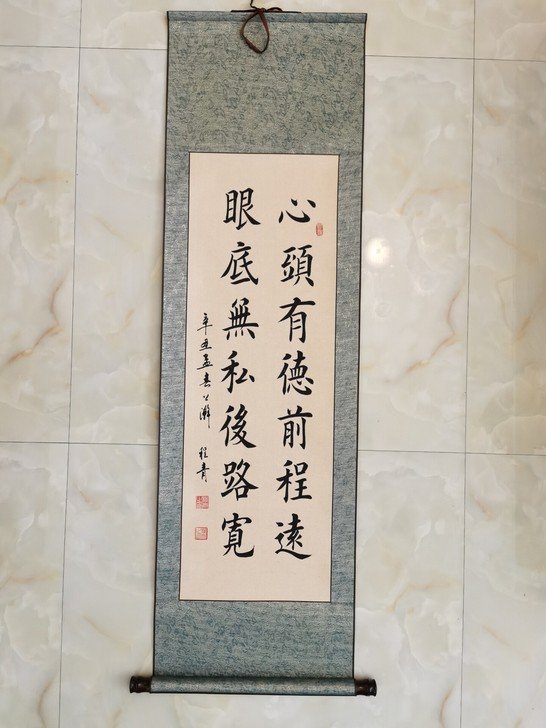 心頭有德前程遠
眼底無私後路寬
辛丑孟春 程青